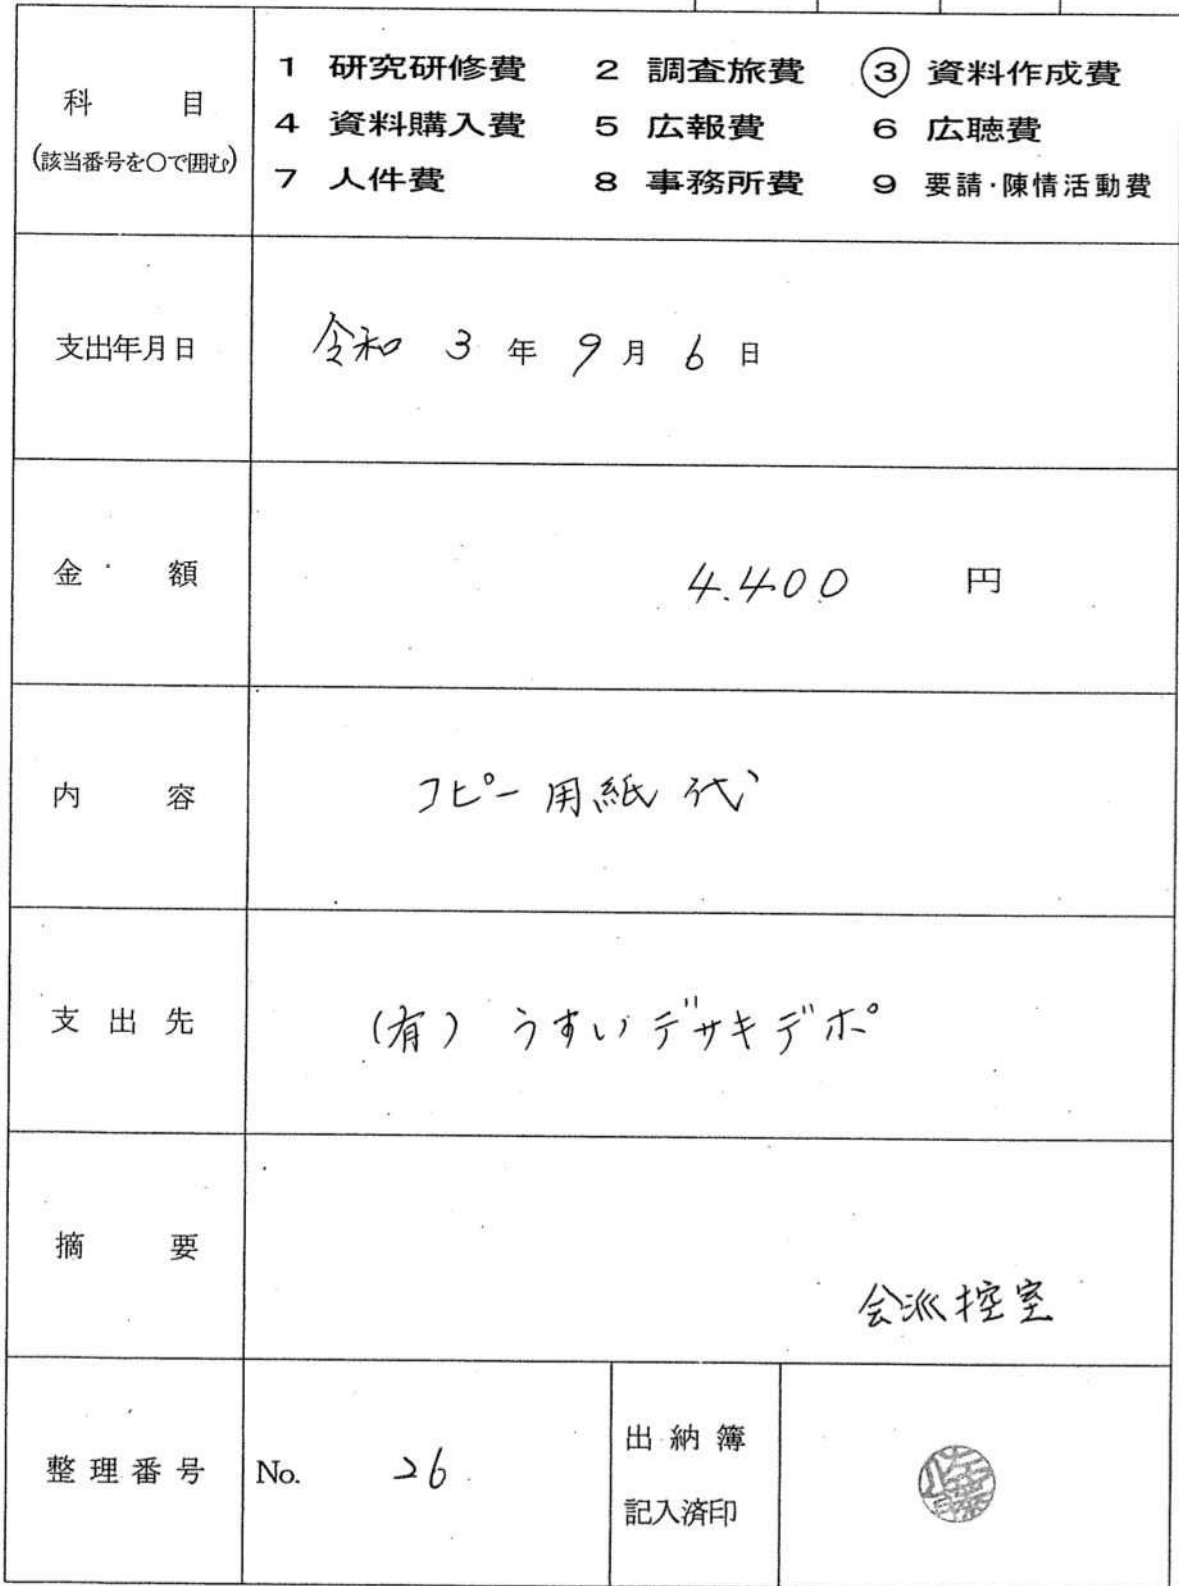 科目
(該当番号を○で囲む)
1 研究研修費 2 調査旅費 ③ 資料作成費
4 資料購入費 5 広報費 6 広聴費
7 人件費 8 事務所費 9 要請・陳情活動費
支出年月日
令和 3 年 9 月 6 日
金額
4.400 円
内容
コピー用紙代
支出先
(有) うすいデサキデポ
摘要
会派控室
整理番号
No. 26
出納簿
記入済印